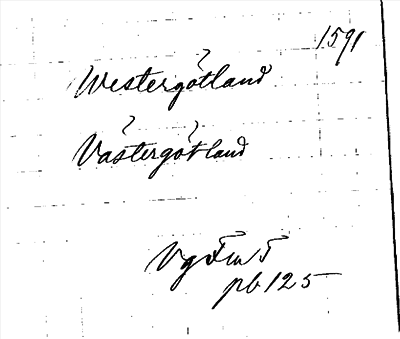 1591
Westergötland
Västergötland
Vg FmT
pb 125